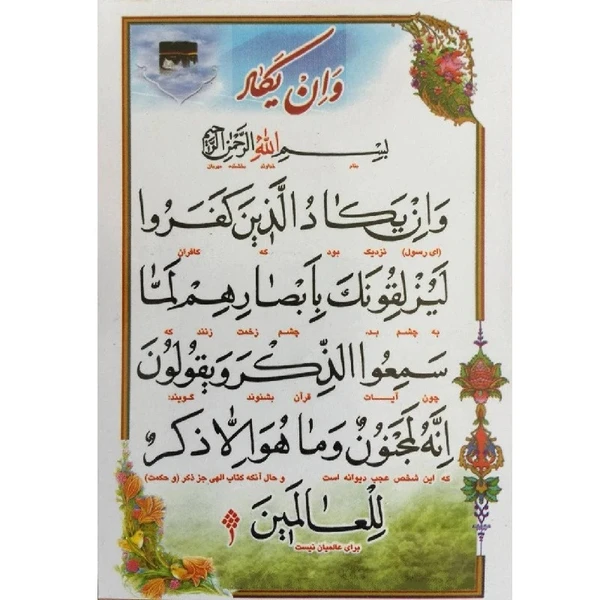 وَاِنْ یَکٰادُ
بِسْمِ اللّٰهِ الرَّحْمٰنِ الرَّحیمِ
بنام خداوند بخشنده مهربان
وَاِنْ یَکٰادُ الَّذینَ کَفَرُوا
(ای رسول) نزدیک بود که کافران
لَیُزْلِقُونَکَ بِاَبْصٰارِهِمْ لَمّٰا
به چشم بد، چشم زخمت زنند که
سَمِعُوا الذِّکْرَ وَیَقُولُونَ
چون آیات قرآن بشنوند گویند:
اِنَّهُ لَمَجْنُونٌ وَمٰا هُوَ اِلّٰا ذِکْرٌ
که این شخص عجب دیوانه است و حال آنکه کتاب الهی جز ذکر (و حکمت)
لِلْعٰالَمینَ
برای عالمیان نیست